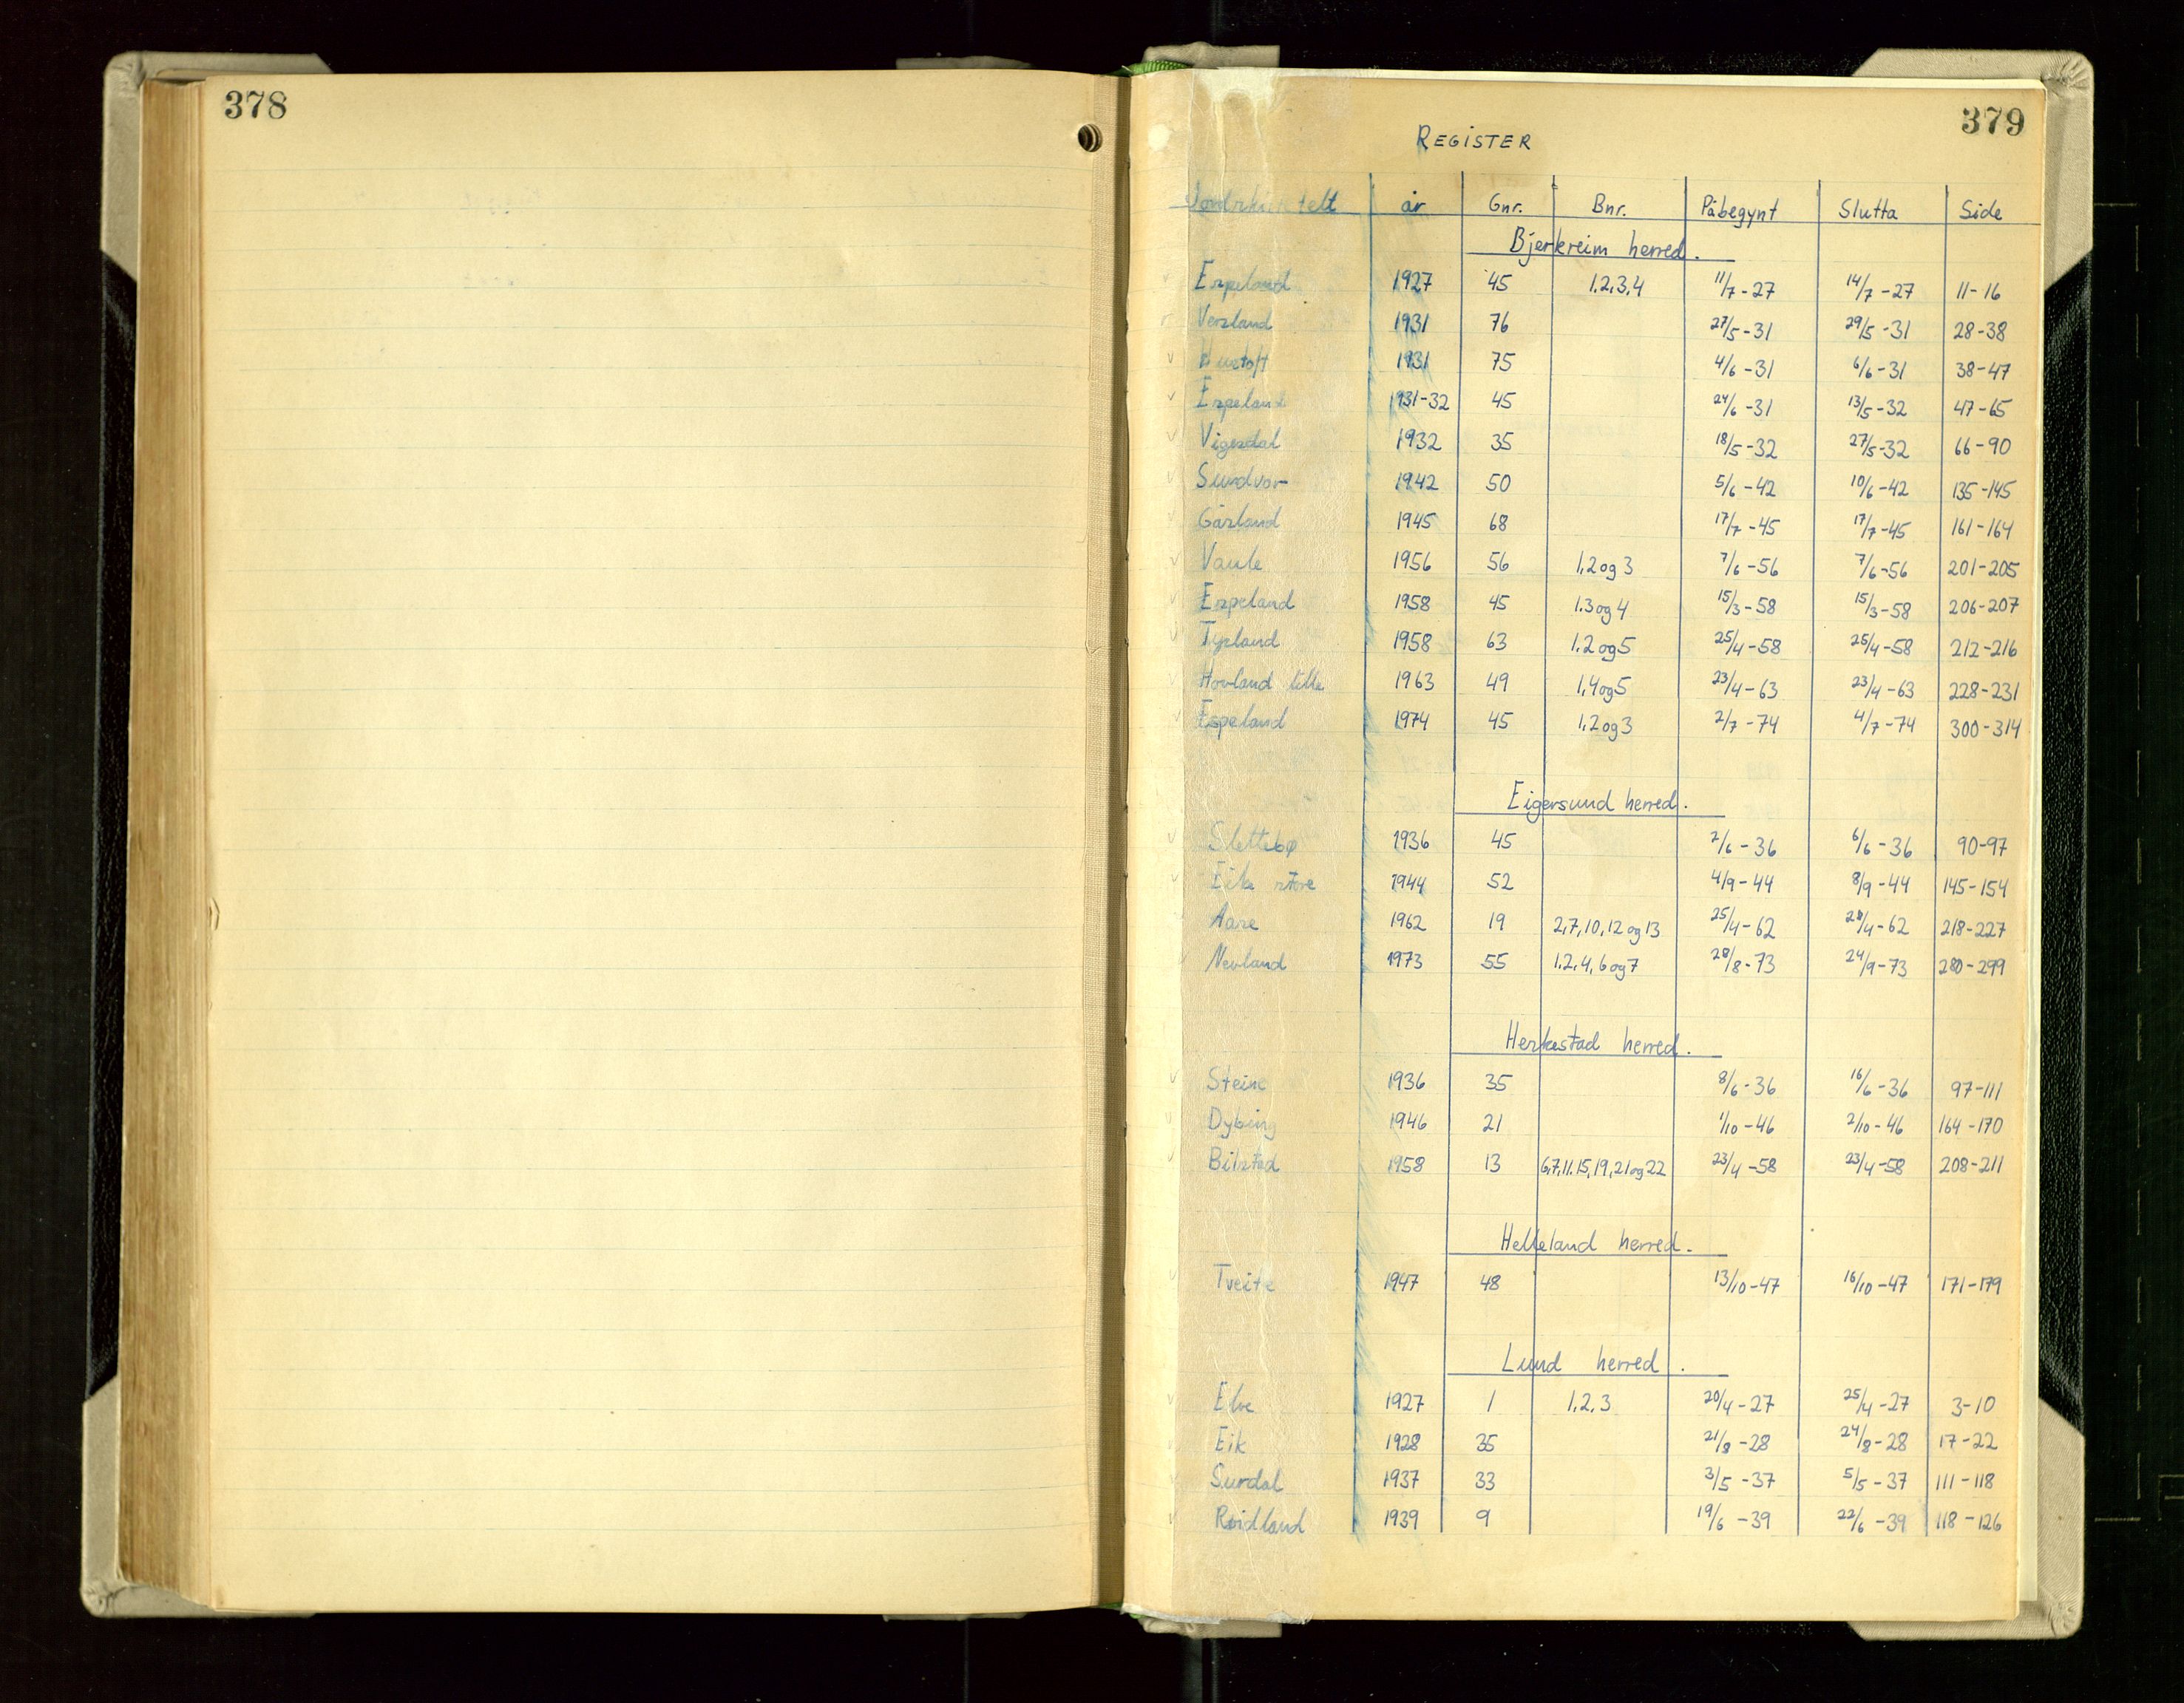 378
379
REGISTER
år Gnr. Bnr. Påbegynt Slutta Side
Bjerkreim herred.
Espeland 1927 45 1,2,3,4 11/7-27 14/7-27 11-16
Versland 1931 76 27/5-31 29/5-31 28-38
1931 75 4/6-31 6/6-31 38-47
Espeland 1931-32 45 24/6-31 13/5-32 47-65
Vigesdal 1932 35 18/5-32 27/5-32 66-90
Sundvor 1942 50 5/6-42 10/6-42 135-145
Gåsland 1945 68 17/7-45 17/7-45 161-164
Vaule 1956 56 1,2 og 3 7/6-56 7/6-56 201-205
Espeland 1958 45 1.3 og 4 15/3-58 15/3-58 206-207
Tysland 1958 63 1.2 og 5 25/4-58 25/4-58 212-216
Hovland litle 1963 49 1,4 og 5 23/4-63 23/4-63 228-231
Espeland 1974 45 1,2 og 3 2/7-74 4/7-74 300-314
Eigersund herred.
Slettebø 1936 45 2/6-36 6/6-36 90-97
Eike store 1944 52 4/9-44 8/9-44 145-154
Aase 1962 19 2,7,10,12 og 13 25/4-62 /4-62 218-227
Nevland 1973 55 1.2.4,6 og 7 28/8-73 24/9-73 280-299
Heskestad herred.
Steine 1936 35 8/6-36 16/6-36 97-111
Dybing 1946 21 1/10-46 2/10-46 164-170
Bilstad 1958 13 6,7,11.15,19,21 og 22 23/4-58 23/4-58 208-211
Helleland herred.
Tveite 1947 48 13/10-47 16/10-47 171-179
Lund herred.
Elve 1927 1 1.2.3 20/4-27 25/4-27 3-10
Eik 1928 35 21/8-28 24/8-28 17-22
Surdal 1937 33 3/5-37 5/5-37 111-118
Røidland 1939 9 19/6-39 22/6-39 118-126